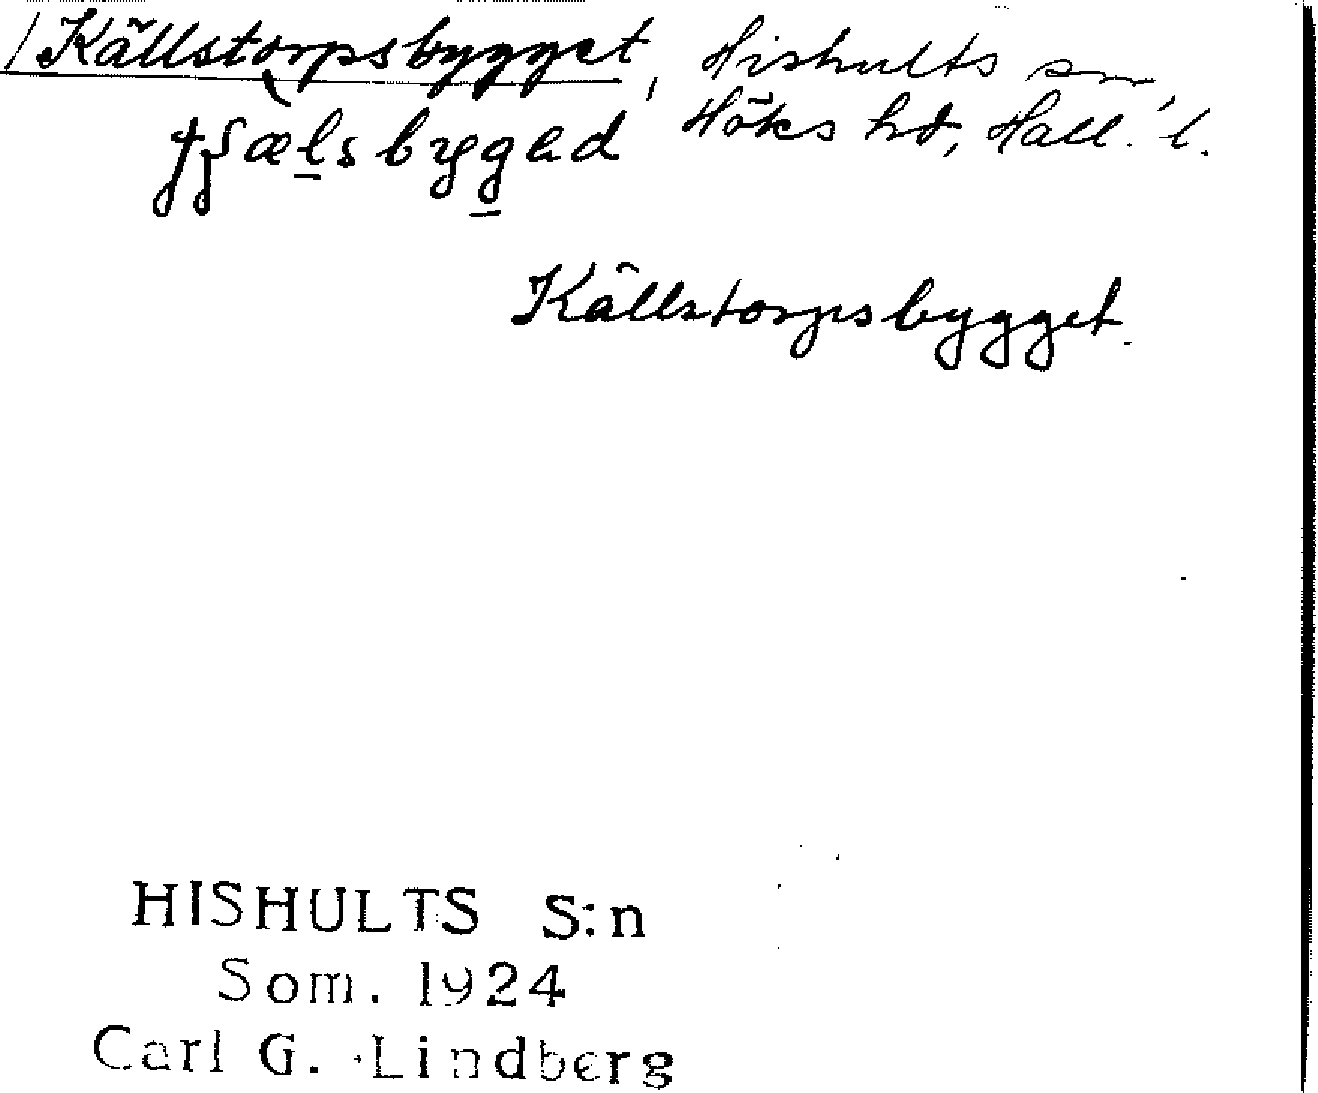 Källstorpsbygget, Hishults sn,
Höks hd, Hall. l.
fʃæl̲sbyg̲ad
Källstorpsbygget.
HISHULTS S:n
Som. 1924
Carl G. Lindberg